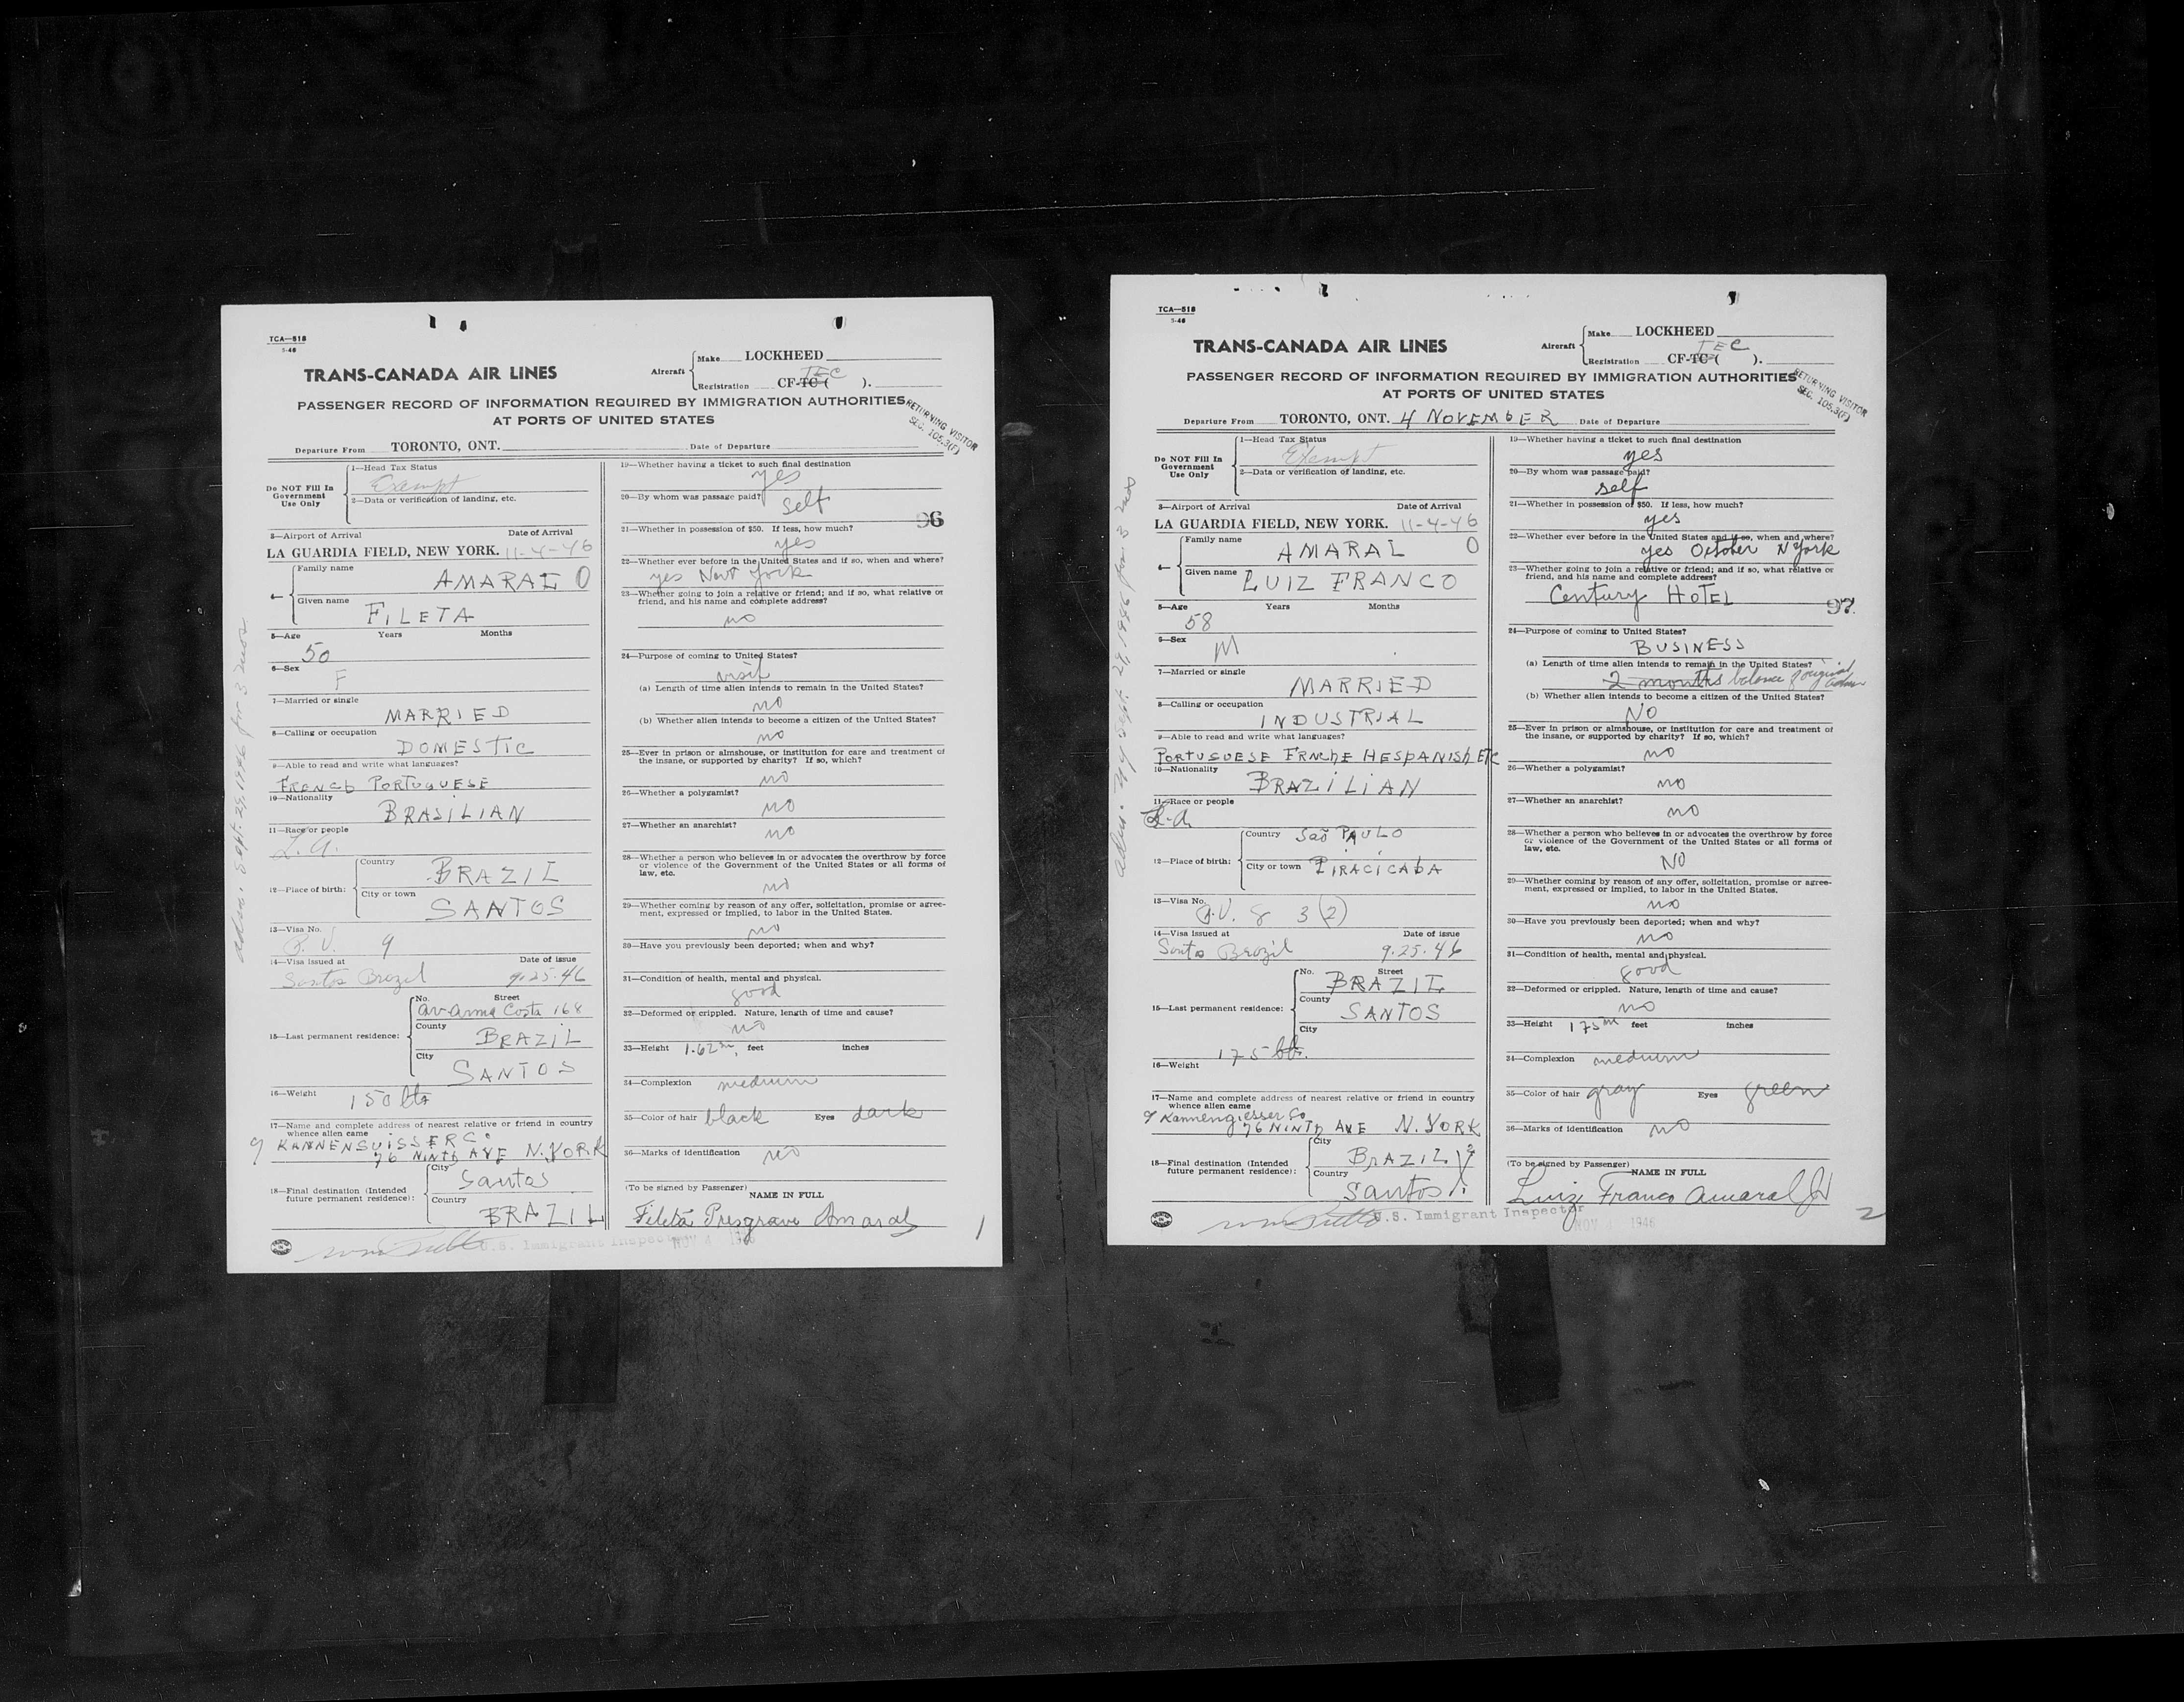 TCA—518
5-46
TRANS-CANADA AIR LINES
Aircraft
Make LOCKHEED
Registration CF-TC ( TEC ).
PASSENGER RECORD OF INFORMATION REQUIRED BY IMMIGRATION AUTHORITIES
AT PORTS OF UNITED STATES
RETURNING VISITOR
SEC. 105.3(F)
Departure From TORONTO, ONT. Date of Departure
Do NOT Fill In
Government
Use Only
1—Head Tax Status
Exempt
2—Data or verification of landing, etc.
3—Airport of Arrival Date of Arrival
LA GUARDIA FIELD, NEW YORK. 11-4-46
4—
Family name
AMARAL O
Given name
FILETA
5—Age Years Months
50
6—Sex
F
7—Married or single
MARRIED
8—Calling or occupation
DOMESTIC
9—Able to read and write what languages?
FRENCh PORTUGUESE
10—Nationality
BRASILIAN
11—Race or people
L.A.
12—Place of birth:
Country
BRAZIL
City or town
SANTOS
13—Visa No.
P. V. 9
14—Visa issued at Date of issue
Santos Brazil 9-25-46
15—Last permanent residence:
No. Street
av anna Costa 168
County
BRAZIL
City
SANTOS
16—Weight
150 lbs
17—Name and complete address of nearest relative or friend in country
whence alien came
KANNENGUISSER Co
76 NINTh AVE N.YORK
18—Final destination (Intended
future permanent residence):
City
Santos
Country
BRAZIL
U.S. Immigrant Inspector
NOV 4 1946
adm. Sept. 29, 1946 for 3 mos
19—Whether having a ticket to such final destination
yes
20—By whom was passage paid?
Self
96
21—Whether in possession of $50. If less, how much?
yes
22—Whether ever before in the United States and if so, when and where?
yes New York
23—Whether going to join a relative or friend; and if so, what relative or
friend, and his name and complete address?
no
24—Purpose of coming to United States?
visit
(a) Length of time alien intends to remain in the United States?
no
(b) Whether alien intends to become a citizen of the United States?
no
25—Ever in prison or almshouse, or institution for care and treatment of
the insane, or supported by charity? If so, which?
no
26—Whether a polygamist?
no
27—Whether an anarchist?
no
28—Whether a person who believes in or advocates the overthrow by force
or violence of the Government of the United States or all forms of
law, etc.
no
29—Whether coming by reason of any offer, solicitation, promise or agree-
ment, expressed or implied, to labor in the United States.
no
30—Have you previously been deported; when and why?
31—Condition of health, mental and physical.
good
32—Deformed or crippled. Nature, length of time and cause?
no
33—Height 1.62 m. feet inches
34—Complexion medium
35—Color of hair black Eyes dark
36—Marks of identification no
(To be signed by Passenger)
NAME IN FULL
Fileta Presgrave Amaral
1
TCA—518
5-46
TRANS-CANADA AIR LINES
Aircraft
Make LOCKHEED
Registration CF-TC ( TEC ).
PASSENGER RECORD OF INFORMATION REQUIRED BY IMMIGRATION AUTHORITIES
AT PORTS OF UNITED STATES
RETURNING VISITOR
SEC. 105.3(F)
Departure From TORONTO, ONT. 4 NOVEMBER Date of Departure
Do NOT Fill In
Government
Use Only
1—Head Tax Status
Exempt
2—Data or verification of landing, etc.
3—Airport of Arrival Date of Arrival
LA GUARDIA FIELD, NEW YORK. 11-4-46
4—
Family name
AMARAL O
Given name
LUIZ FRANCO
5—Age Years Months
58
6—Sex
M
7—Married or single
MARRIED
8—Calling or occupation
INDUSTRIAL
9—Able to read and write what languages?
PORTUGUESE FRNChE HESPANISh ETC
10—Nationality
BRAZILIAN
11—Race or people
L.A.
12—Place of birth:
Country
São PAULO
City or town
PIRACICAbA
13—Visa No.
P.V. 8 3(2)
14—Visa issued at Date of issue
Santos Brazil 9-25-46
15—Last permanent residence:
No. Street
BRAZIL
County
SANTOS
City
16—Weight
175 lbs.
17—Name and complete address of nearest relative or friend in country
whence alien came
Kannengiesser Co
76 NINTh AVE N.YORK
18—Final destination (Intended
future permanent residence):
City
BRAZIL
Country
Santos
U.S. Immigrant Inspector
NOV 4 1946
adm. NY Sept. 29, 1946 for 3 mos
19—Whether having a ticket to such final destination
yes
20—By whom was passage paid?
self
21—Whether in possession of $50. If less, how much?
yes
22—Whether ever before in the United States and if so, when and where?
yes October N York
23—Whether going to join a relative or friend; and if so, what relative or
friend, and his name and complete address?
Century HOTEL
97.
24—Purpose of coming to United States?
BUSINESS
(a) Length of time alien intends to remain in the United States?
2 months balance of original adm
(b) Whether alien intends to become a citizen of the United States?
NO
25—Ever in prison or almshouse, or institution for care and treatment of
the insane, or supported by charity? If so, which?
no
26—Whether a polygamist?
no
27—Whether an anarchist?
no
28—Whether a person who believes in or advocates the overthrow by force
or violence of the Government of the United States or all forms of
law, etc.
NO
29—Whether coming by reason of any offer, solicitation, promise or agree-
ment, expressed or implied, to labor in the United States.
no
30—Have you previously been deported; when and why?
no
31—Condition of health, mental and physical.
good
32—Deformed or crippled. Nature, length of time and cause?
no
33—Height 175 m feet inches
34—Complexion medium
35—Color of hair gray Eyes green
36—Marks of identification no
(To be signed by Passenger)
NAME IN FULL
Luiz Franco Amaral Jr
2